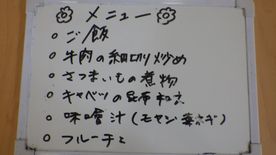 メニュー
○ご飯
○牛肉の細切り炒め
○さつまいもの煮物
○キャベツの昆布和え
○味噌汁(モヤシ葉ネギ)
○フルーチェ